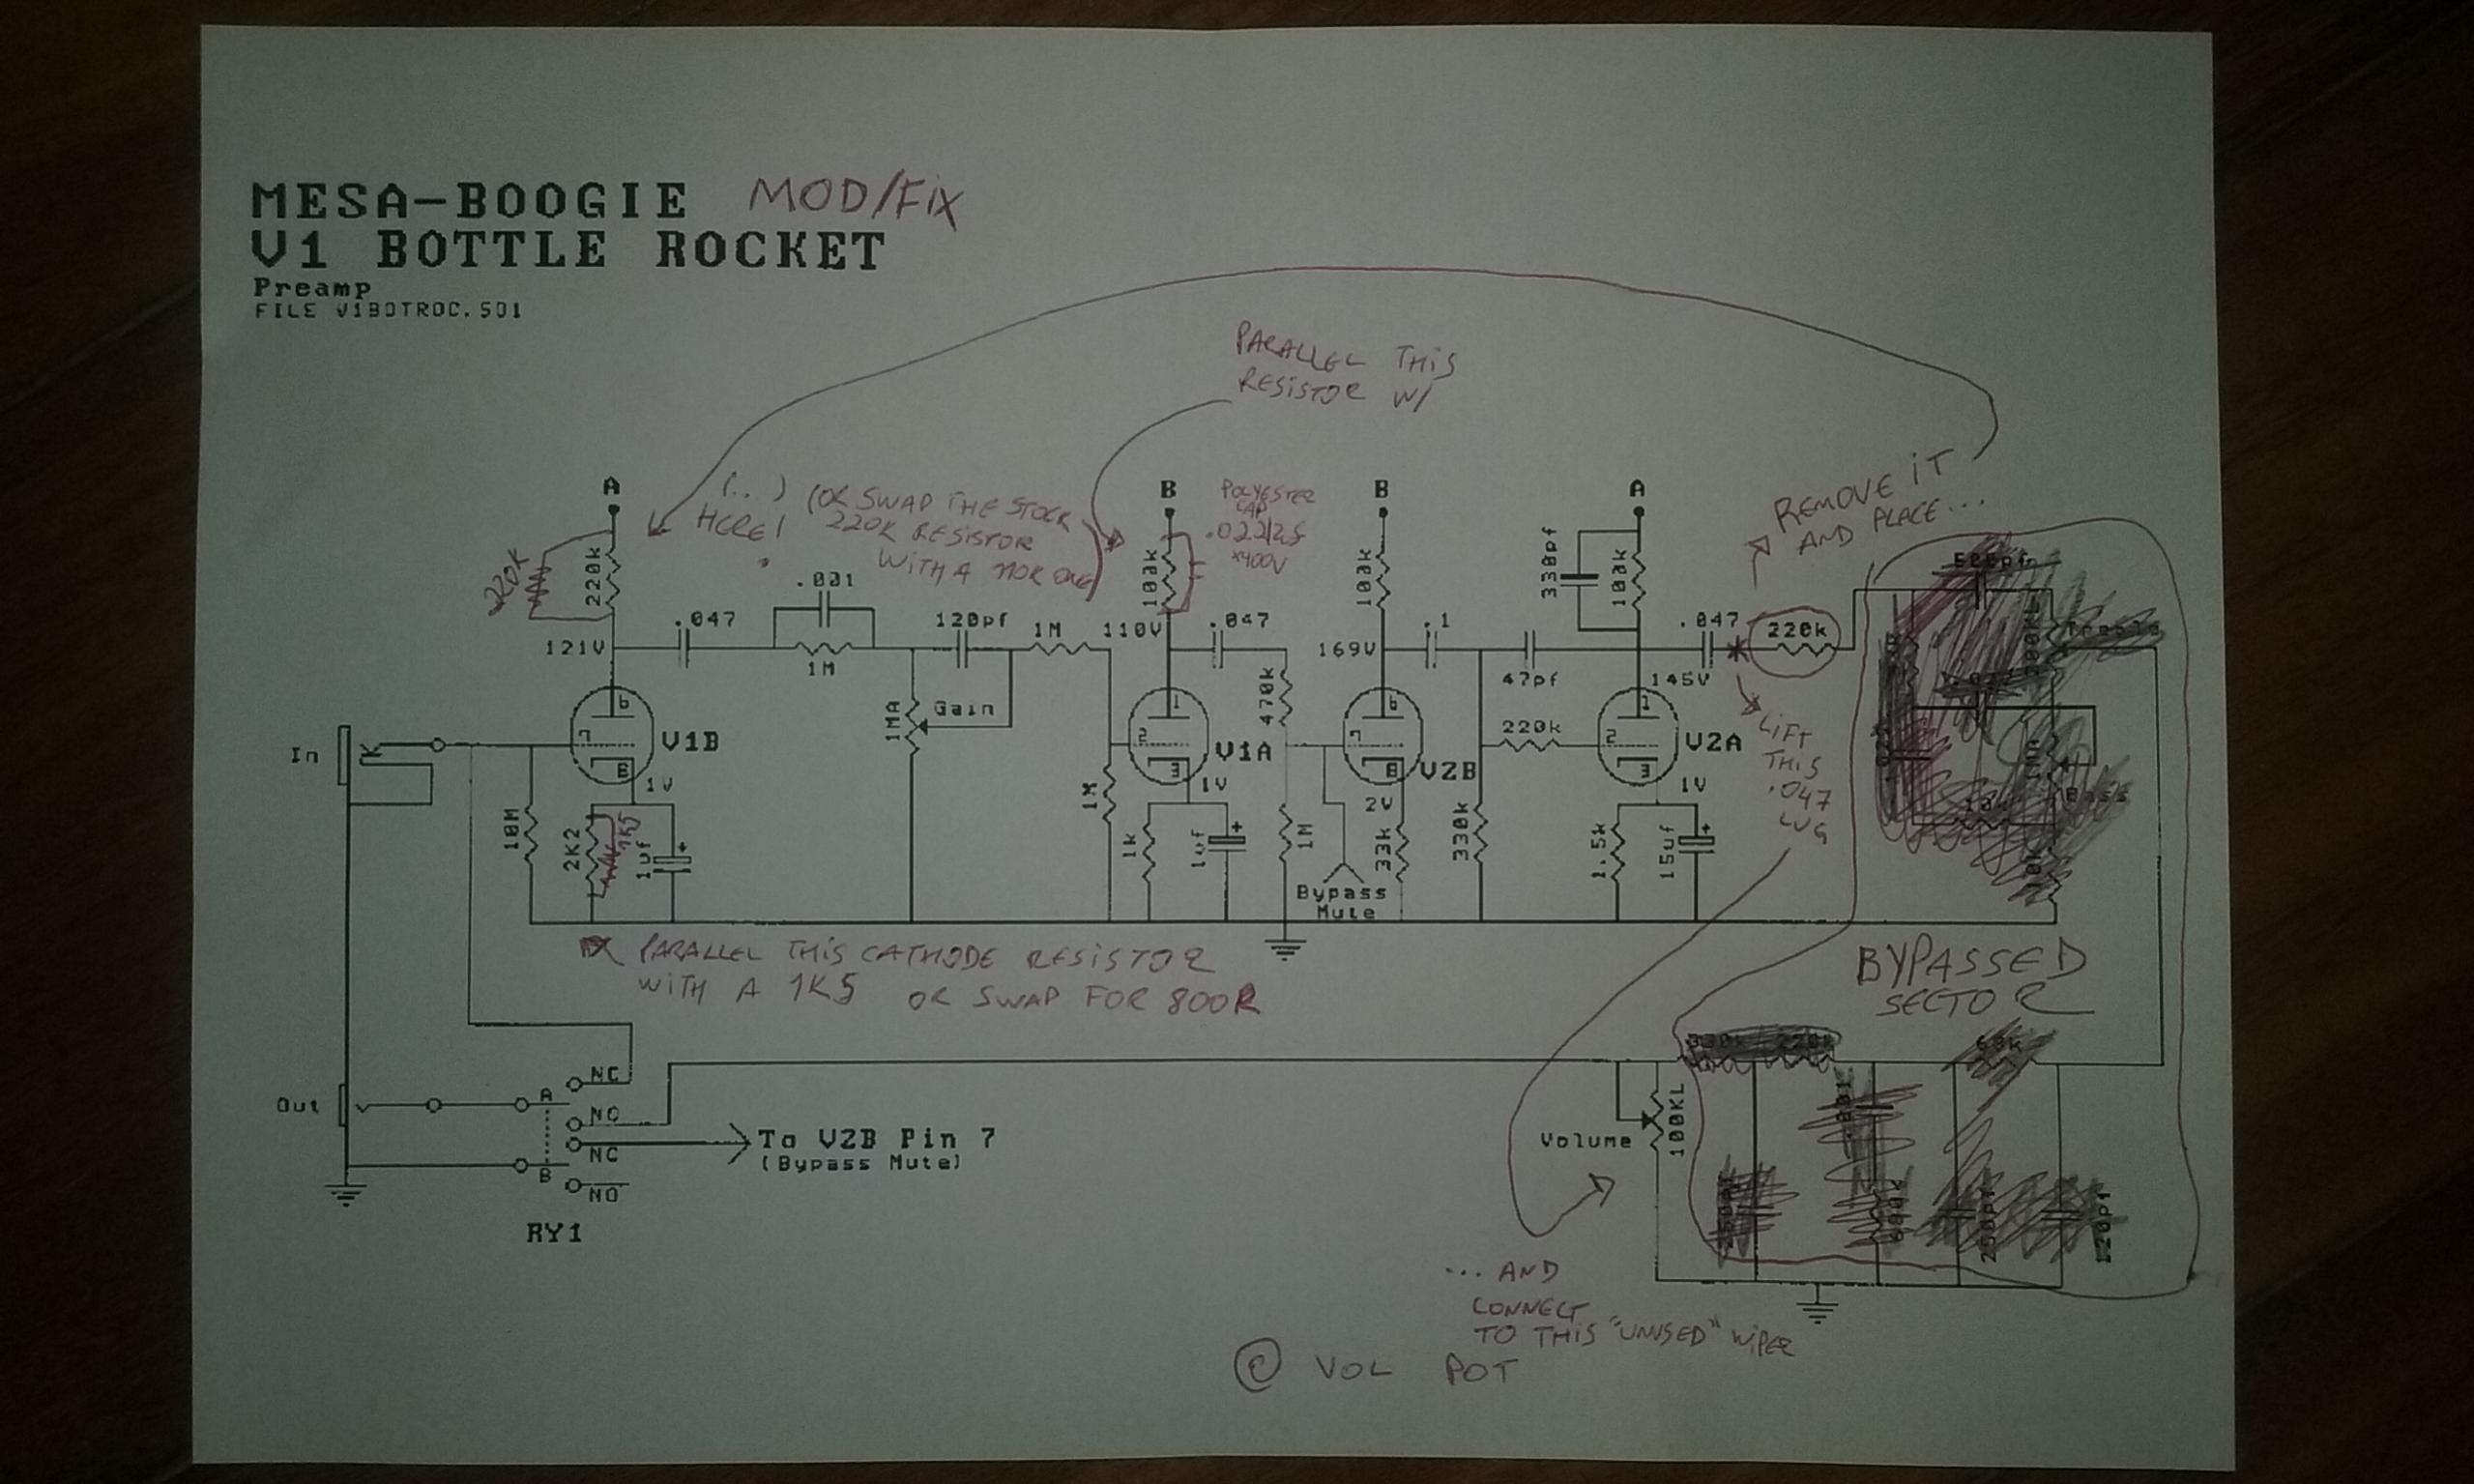 MESA-BOOGIE MOD/FiX
V1 BOTTLE ROCKET
Preamp
FILE V1BOTROC.S01
PARALLEL THiS
RESiSTOR W/
REMOVE iT
AND PLACE...
(...)
HERE!
(OR SWAP THE STOCK
220K RESISTOR
WITH A 110K ONE)
POLYESTER
CAP
*400V
A
B
B
A
220K
220k
100k
100k
330pf
100k
.047
.001
120pf
1M
110V
.047
.1
.047
220k
121V
1M
169V
47pf
145V
1MA
Gain
470k
220k
In
6
7
8
V1B
1V
1
2
3
V1A
1V
6
7
8
V2B
2V
1
2
3
V2A
1V
LiFT
THiS
.047
LUG
10M
2K2
1K5
1uf
1M
1k
1uf
1M
33k
330k
1.5k
15uf
Bypass
Mute
Bass
PARALLEL THiS CATHODE RESiSTOR
WiTH A 1K5 OR SWAP FOR 800R
BYPASSED
SECTOR
330k
220k
68k
NC
Out
A
NO
NC
B
NO
To V2B Pin 7
(Bypass Mute)
RY1
Volume
100KL
680k
250pf
120pf
... AND
CONNECT
TO THiS "UNUSED" WiPER
@ VOL POT